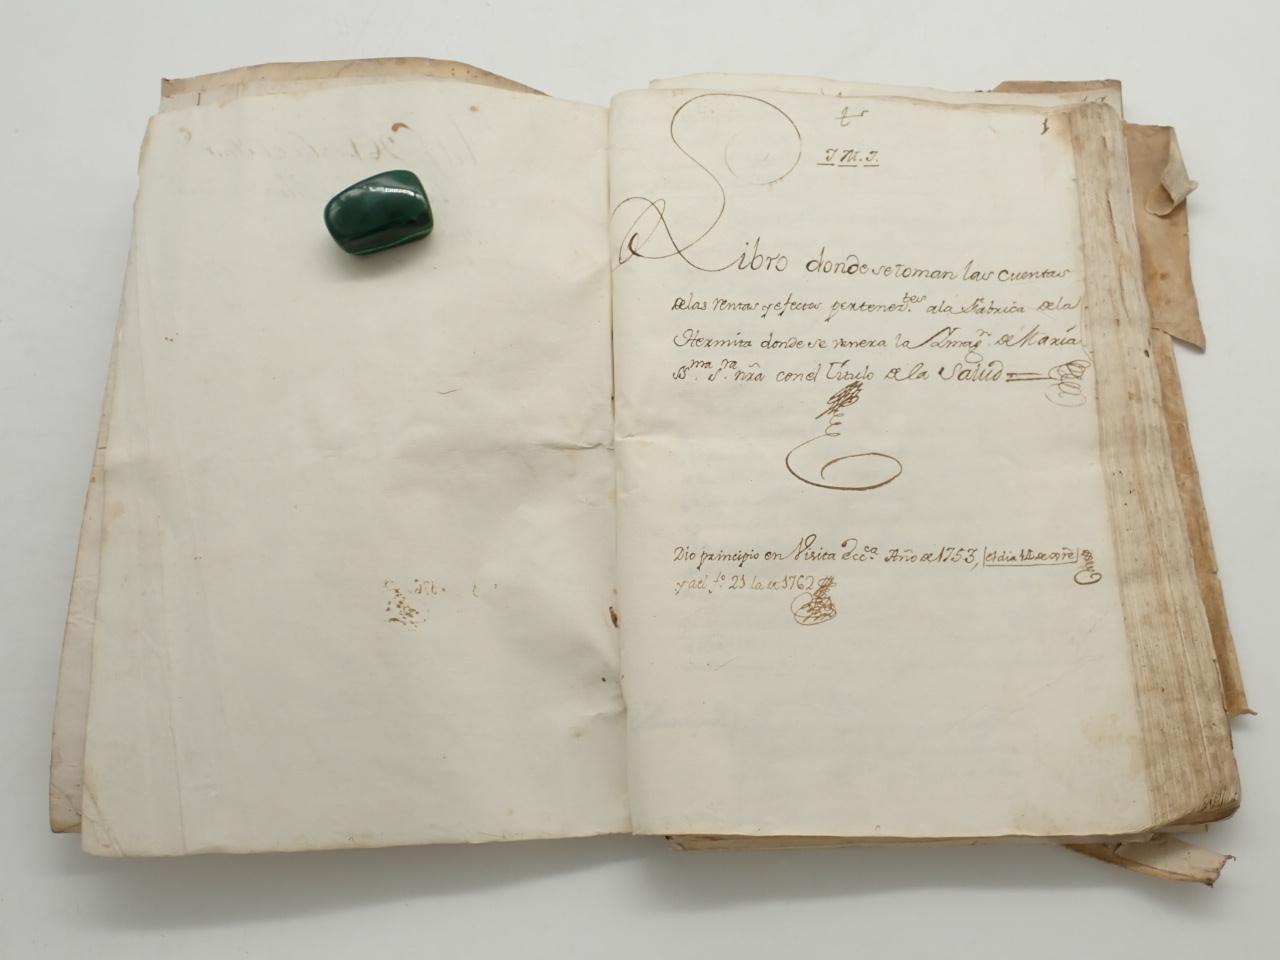 1
J. M. J.
Libro donde se toman las cuentas
de las rentas y efectos pertenez.tes a la Fabrica de la
Hermita donde se venera la S. Ymag.n de Maria
SS.ma S.ra nrã con el Titulo de la Salud
Dio principio en Visita Ecc.ca Año de 1753, el dia de
y al f.o 21 la de 1762